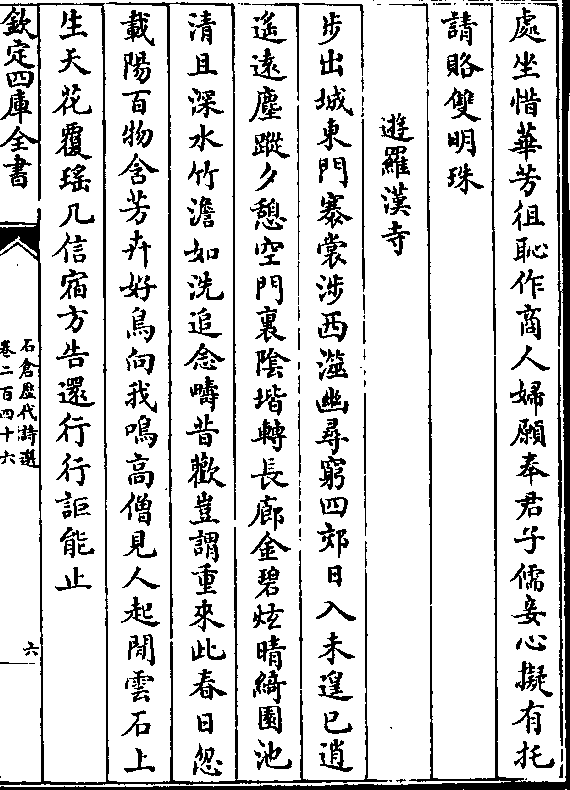 處坐惜華芳徂恥作商人婦願奉君子儒妾心擬有托
請賂雙明珠
遊羅漢寺
步出城東門褰裳涉西澨幽尋窮四郊日入未遑已逍
遙遠塵蹤夕憩空門裏陰堦轉長廊金碧炫晴綺園池
清且深水竹澹如洗追念疇昔歡豈謂重來此春日忽
載陽百物含芳卉好鳥向我鳴高僧見人起閒雲石上
生天花覆瑤几信宿方告還行行詎能止
欽定四庫全書
石倉歷代詩選
卷二百四十六
六